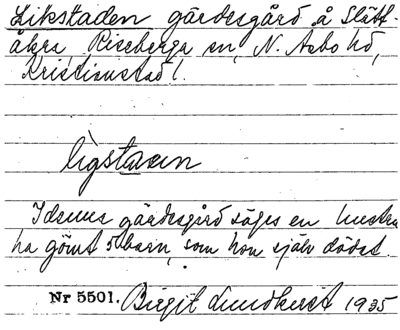 Likstaden gärdesgård å Slätt-
åkra Riseberga sn, N. Asbo hd,
Kristianstad l.
lìgstaen
I denna gärdesgård säges en hustru
ha gömt 5 barn, som hon själv dödat.
Nr 5501. Birgit Lundkvist 1935